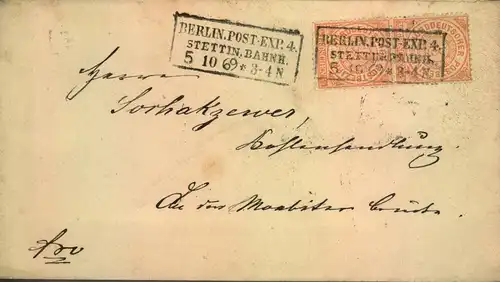 BERLIN.POST-EXP.4.
STETTIN.BAHNH.
5 10 69 * 3-4 N
BERLIN.POST-EXP.4.
STETTIN.BAHNH.
5 10 69 * 3-4 N
NORDDEUTSCHER POST
Herrn
Kohlenhandlung.
An der Moabiter Brücke
fro